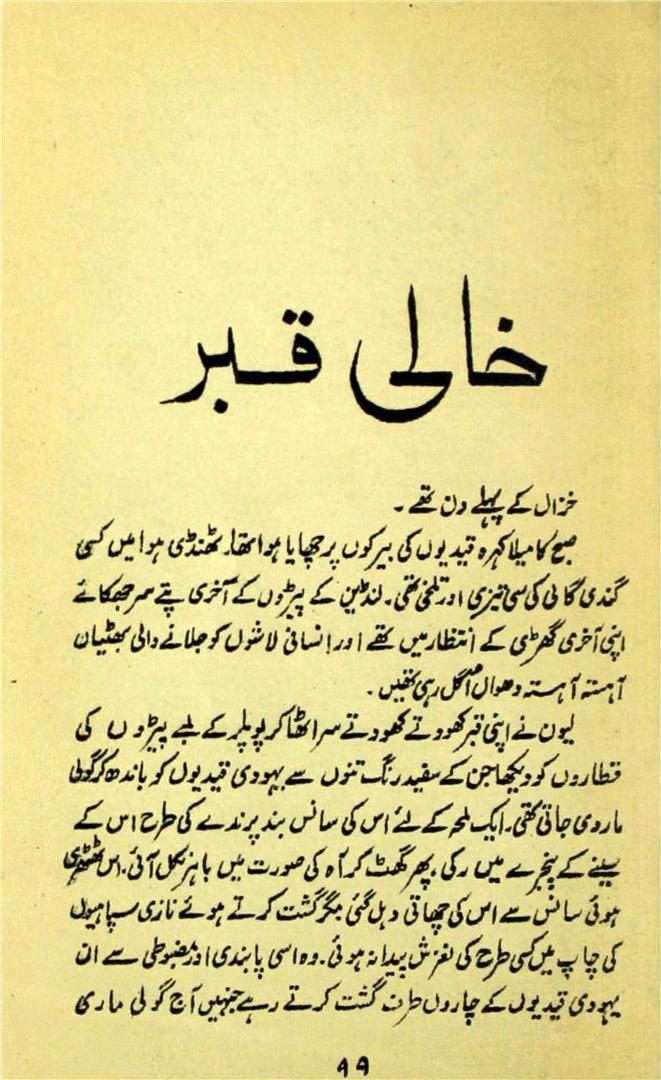 خالی قبر
خزاں کے پہلے دن تھے ۔
صبح کا میلا کہرہ قیدیوں کی بیرکوں پر چھایا ہوا تھا۔ ٹھنڈی ہوا میں کسی
گندی گالی کی سی تیزی اور تلخی تھی۔ لنڈین کے پیڑوں کے آخری پتے سر جھکائے
اپنی آخری گھڑی کے انتظار میں تھے اور انسانی لاشوں کو جلانے والی بھٹیاں
آہستہ آہستہ دھواں اگل رہی تھیں ۔
لیون نے اپنی قبر کھودتے کھودتے سر اٹھا کر پوپلر کے لمبے پیڑوں کی
قطاروں کو دیکھا جن کے سفید رنگ تنوں سے یہودی قیدیوں کو باندھ کر گولی
ماردی جاتی تھی۔ ایک لمحہ کے لئے اس کی سانس بند پرندے کی طرح اس کے
سینے کے پنجرے میں رکی، پھر گھٹ کر آہ کی صورت میں باہر نکل آئی۔ اس ٹھٹھری
ہوئی سانس سے اس کی چھاتی دہل گئی مگر گشت کرتے ہوئے نازی سپاہیوں
کی چاپ میں کسی طرح کی لغزش پیدا نہ ہوئی۔ وہ اسی پابندی اور مضبوطی سے ان
یہودی قیدیوں کے چاروں طرف گشت کرتے رہے جنہیں آج گولی ماری
۹۹